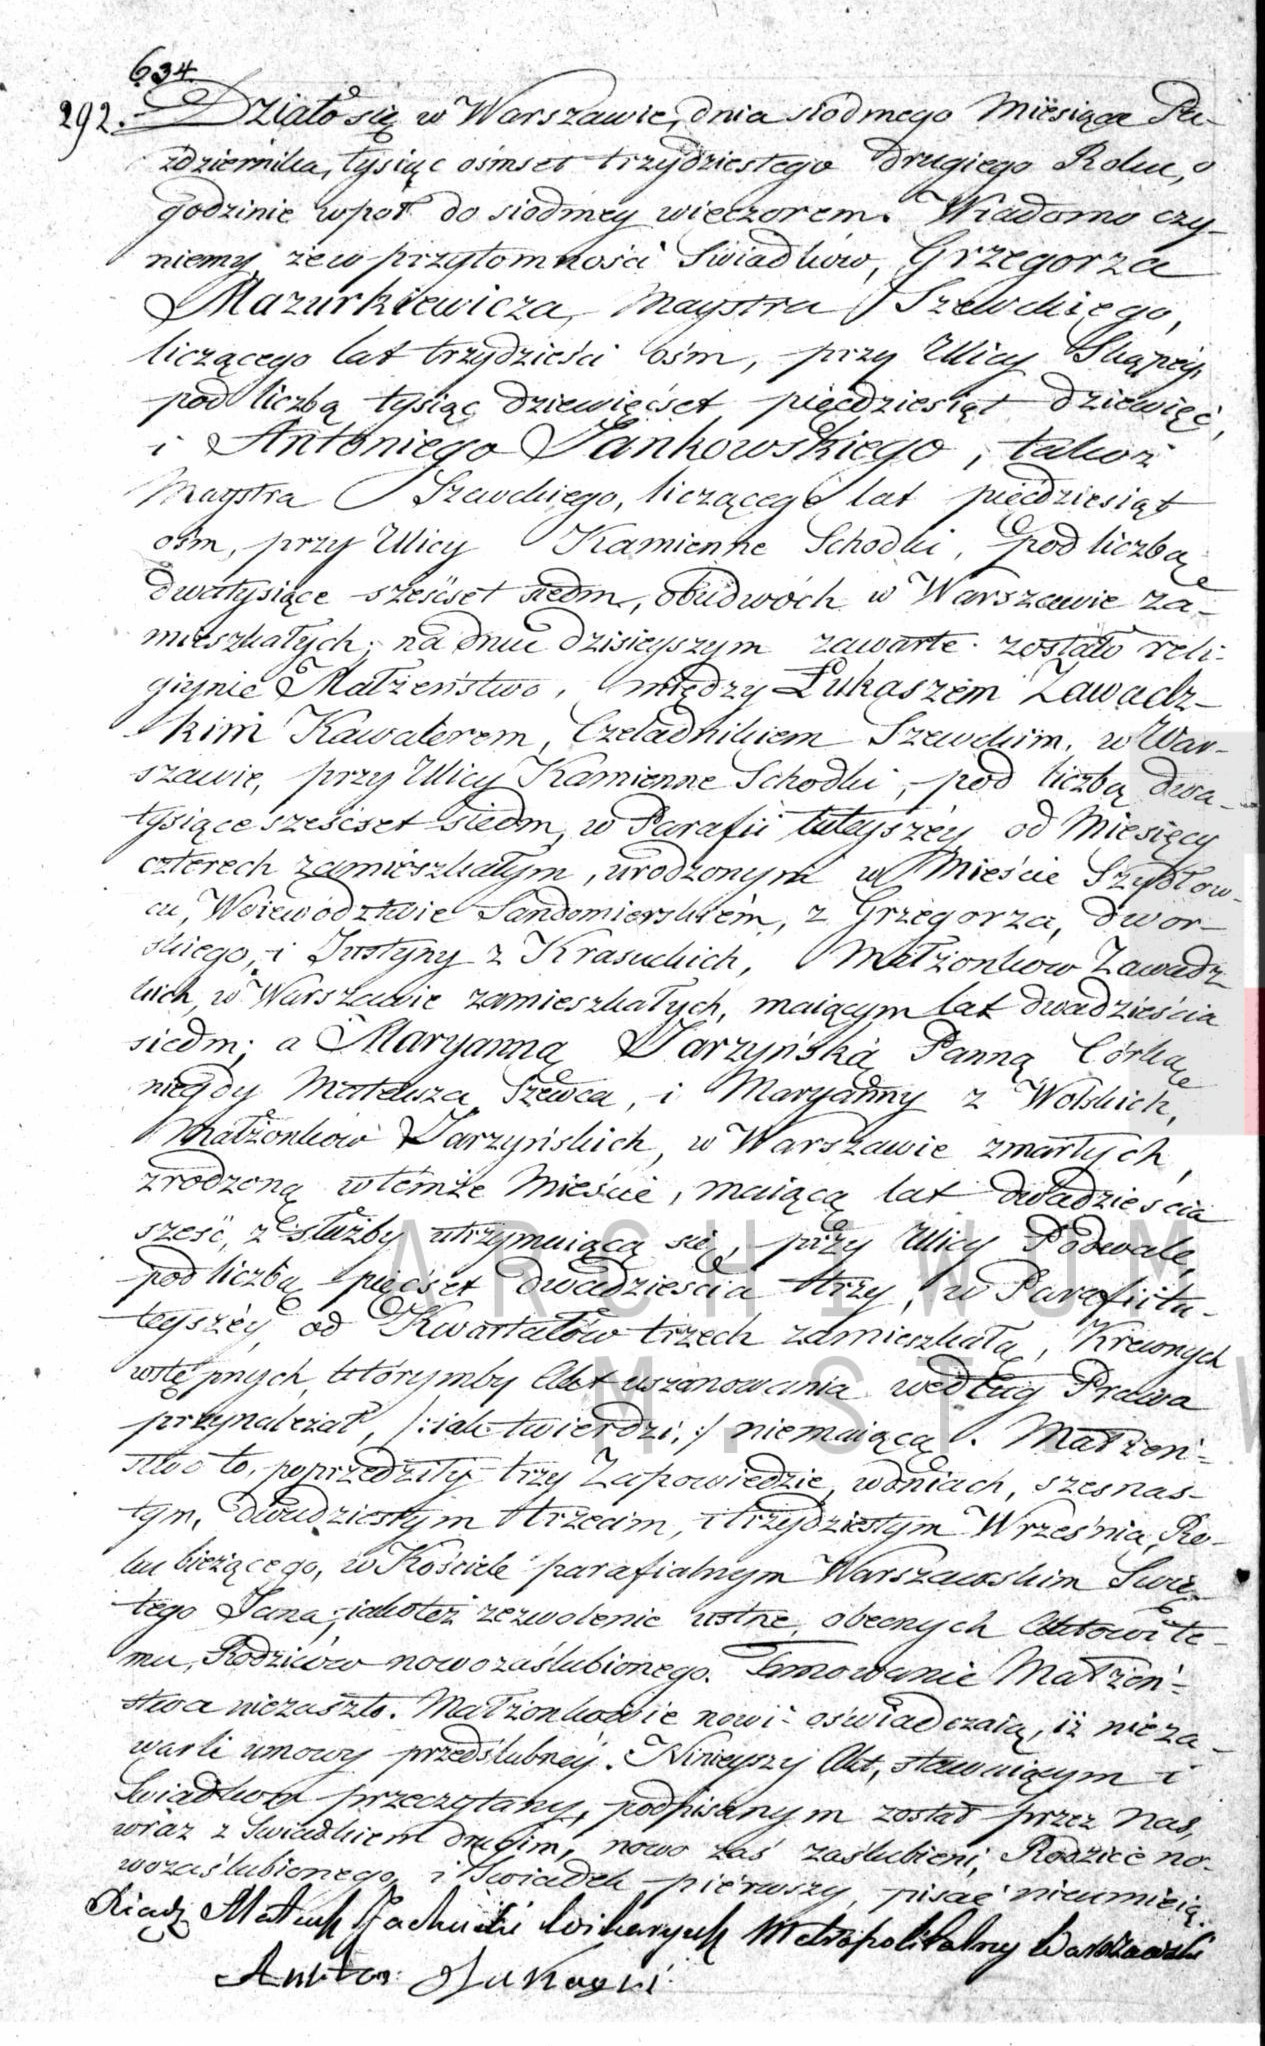 634
292. Działo się w Warszawie, dnia siódmego Miesiąca Pa-
ździernika, tysiąc ośmset trzydziestego drugiego Roku, o
godzinie wpoł do siodmey wieczorem. Wiadomo czy-
niemy, żew przytomności Swiadków, Grzegorza
Mazurkiewicza, Maystra Szewckiego,
liczącego lat trzydzieści ośm, przy Ulicy Skąpéy,
pod liczbą tysiąc dziewięćset pięćdziesiąt dziewięć,
i Antoniego Jankowskiego, takoż
Maystra Szewckiego, liczącego lat pięćdziesiąt
ośm, przy Ulicy Kamienne Schodki, pod liczbą
dwatysiące sześćset siedm, obudwóch w Warszawie za-
mieszkałych; na dniu dzisieyszym zawarte zostało reli-
giynie Małżeństwo, między Łukaszem Zawadz-
kim Kawalerem, Czeladnikiem Szewckim, w War-
szawie, przy Ulicy Kamienne Schodki, pod liczbą dwa-
tysiące sześćset siedm, w Parafii tuteyszéy od Miesięcy
czterech zamieszkałym, urodzonym w Mieście Szydłow-
cu, Woiewództwie Sandomierskiém, z Grzegorza, dwor-
skiego, i Justyny z Krasuckich, Małżonkow Zawadz-
kich, w Warszawie zamieszkałych, maiącym lat dwadzieścia
siedm; a Maryanną Jarzyńską Panną Córką
niegdy Mateusza Szewca, i Maryanny z Wolskich,
Małżonków Jarzyńskich, w Warszawie zmarłych,
zrodzoną wtemże Mieście, maiącą lat dwadzieścia
sześć, z służby utrzymuiącą się, przy Ulicy Podwale,
pod liczbą pięćset dwadzieścia trzy, w Parafii tu-
teyszéy od Kwartałów trzech zamieszkałą, Krewnych
wstępnych, którymby Akt uszanowania według Prawa
przynależał, /:iak twierdzi:/ niemaiącą. Małżeń-
stwo to, poprzedziły trzy Zapowiedzie, wdniach, szesnas-
tym, dwudziestym trzecim, i trzydziestym Września, Ro-
ku bieżącego, w Kościele parafialnym Warszawskim Swię-
tego Jana; iakoteż zezwolenie ustne, obecnych Aktowi te-
mu, Rodziców nowozaślubionego. Tamowanie Małżeń-
stwa niezaszło. Małżonkowie nowi oświadczaią, iż nieza-
warli umowy przedślubnéy. Ninieyszy Akt, stawaiącym i
Swiadkom przeczytany, podpisanym został przez Nas,
wraz z Swiadkiem drugim, nowo zaś zaślubieni, Rodzice no-
wozaślubionego, i Swiadek pierwszy, pisać nieumieią.
Xiądz Mateusz Wikaryusz Metropolitalny Warszawski
ARCHIWUM
M. ST. W